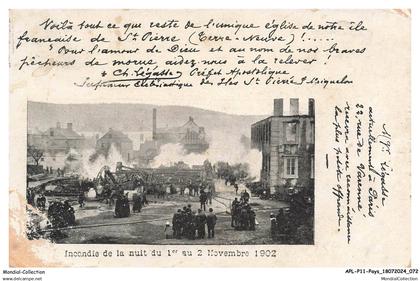 Voilà tout ce que reste de l'unique église de notre île
française de St Pierre (Terre-Neuve) !.....
"Pour l'amour de Dieu et au nom de nos braves
pêcheurs de morue aidez nous à la relever !
+ Ch. Légasse Préfet Apostolique
Supérieur Ecclésiastique des Iles St Pierre & Miquelon
Mgr Légasse
actuellement à Paris
22 rue de Varenne
recevra avec reconnaissance
la plus petite offrande
Incendie de la nuit du 1er au 2 Novembre 1902
Mondial Collection
www.MondialCollection.com
APL-P11-Pays_18072024_072
Mondial Collection
www.MondialCollection.com